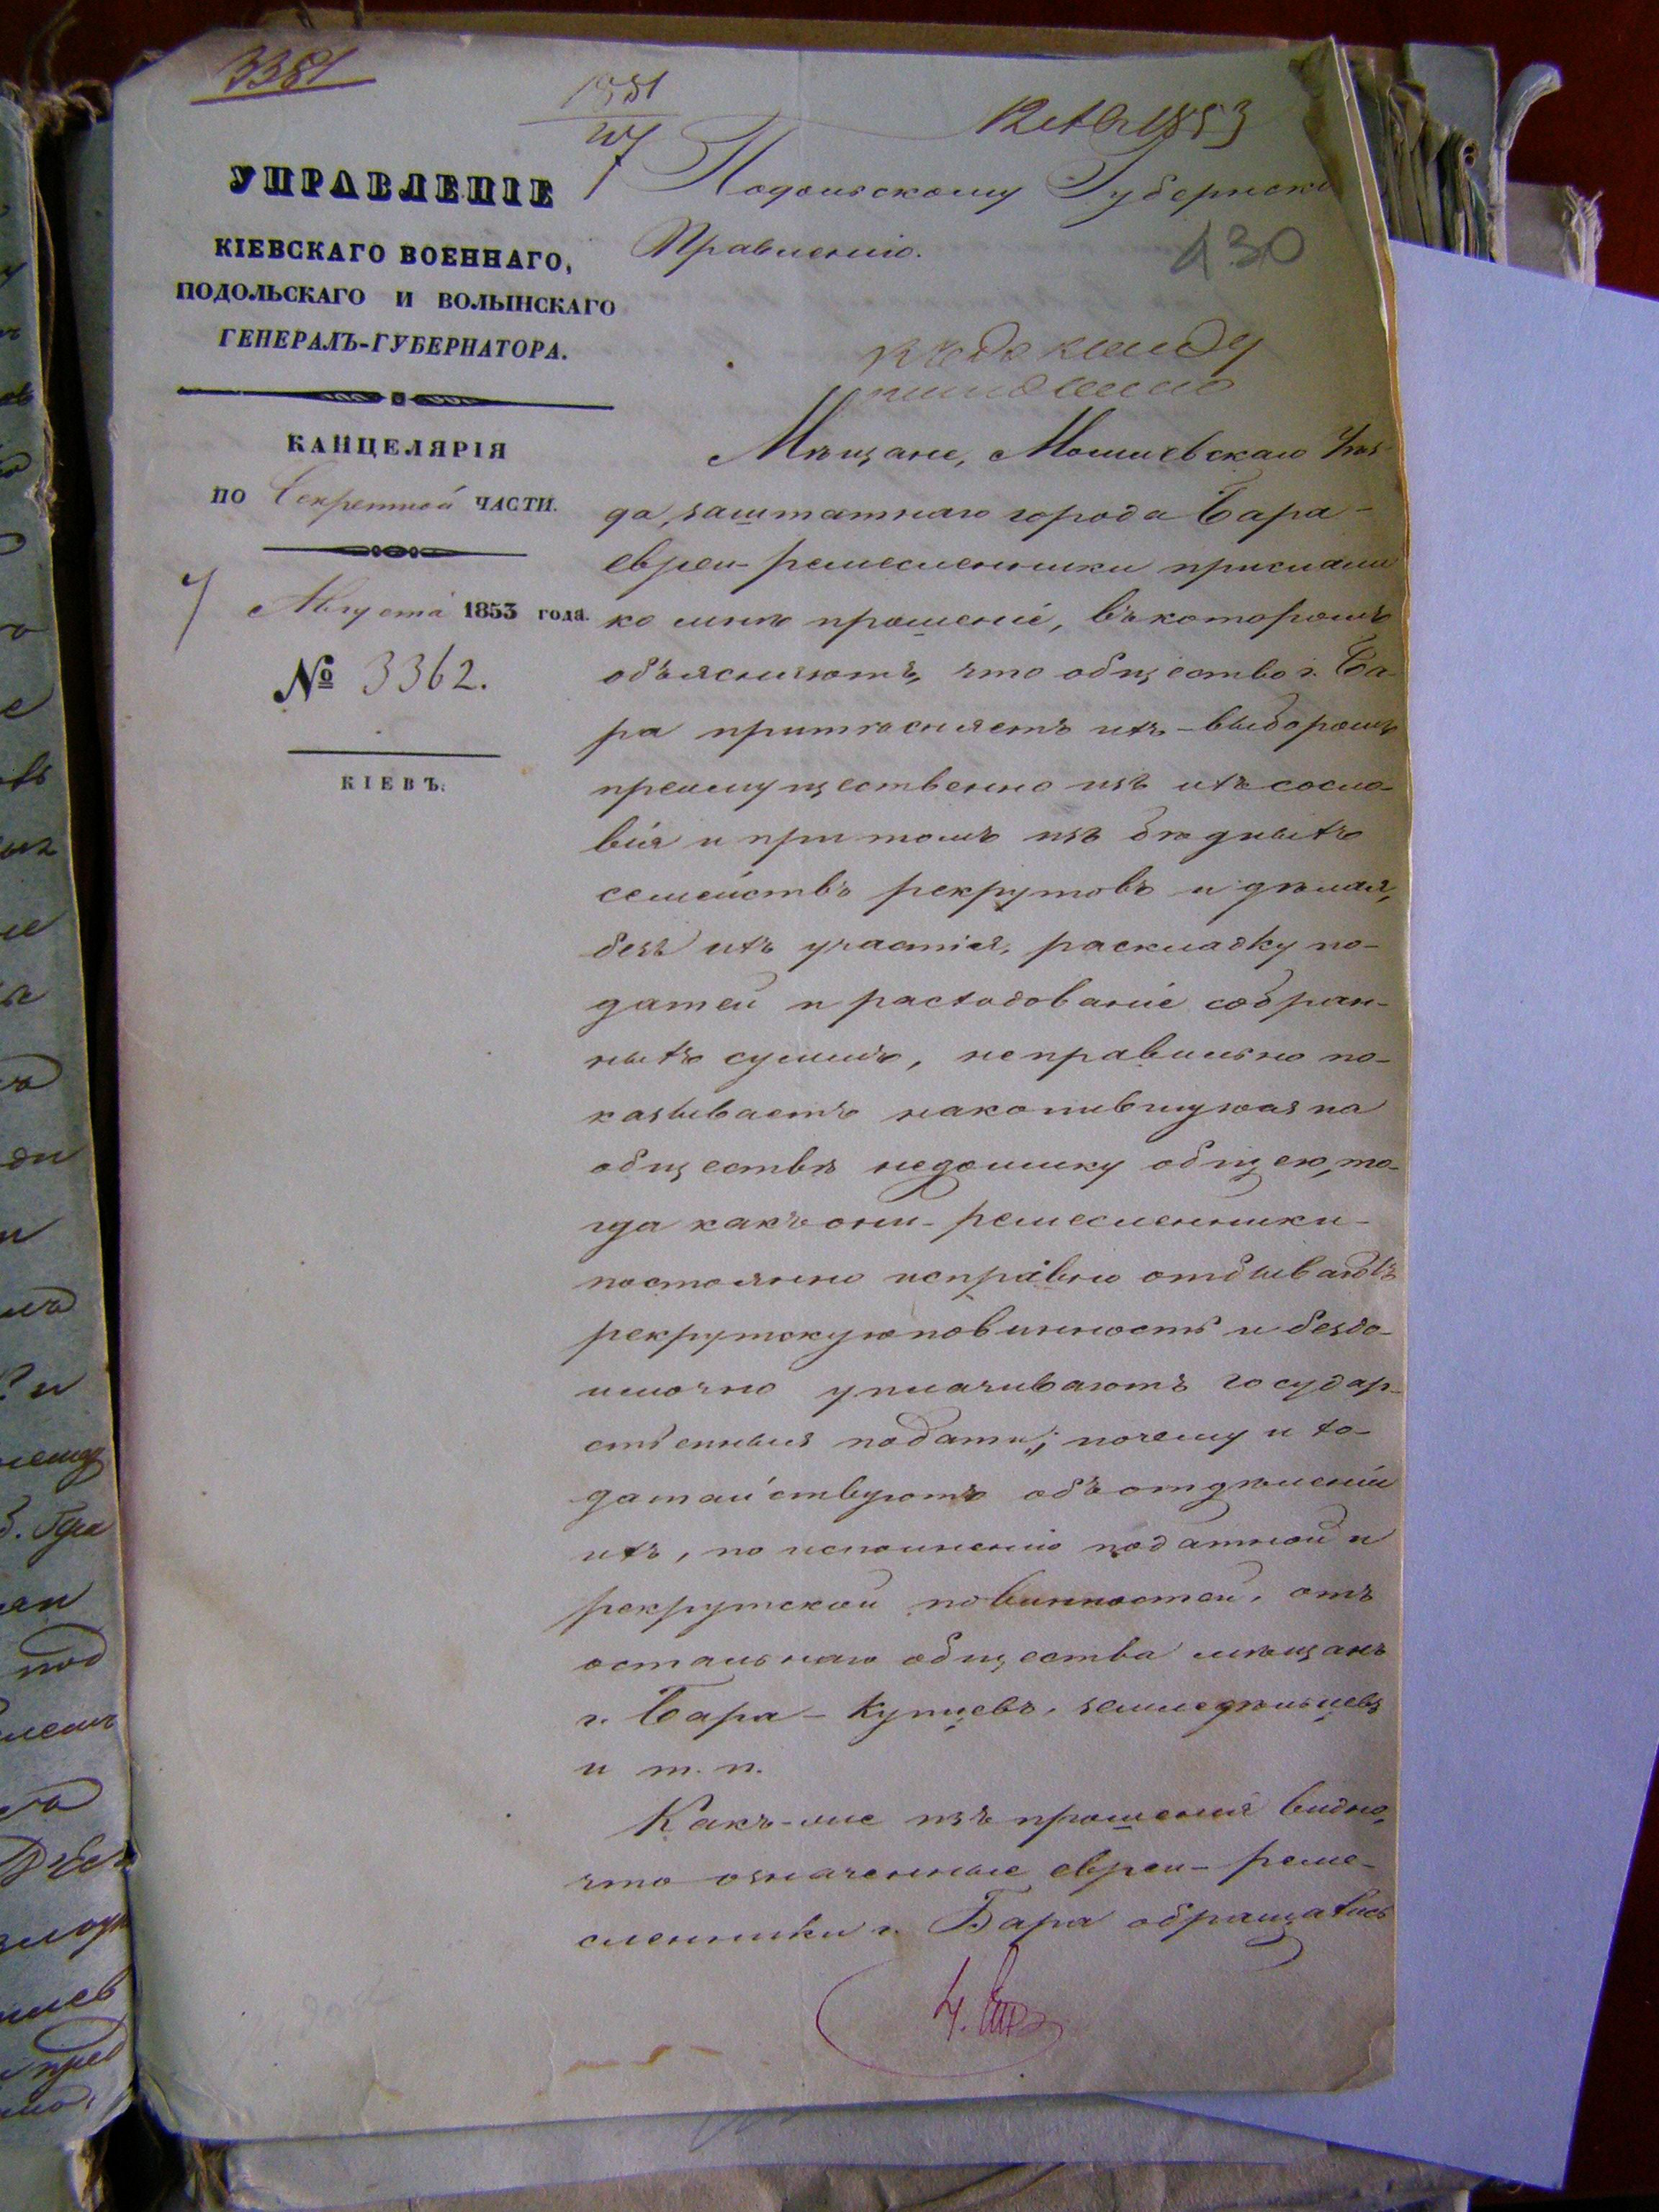 3381
1881
12 Авг 1853
УПРАВЛЕНІЕ
КІЕВСКАГО ВОЕННАГО,
ПОДОЛЬСКАГО И ВОЛЫНСКАГО
ГЕНЕРАЛЪ-ГУБЕРНАТОРА.
КАНЦЕЛЯРІЯ
ПО Секретной ЧАСТИ.
7 Августа 1853 года.
№ 3362.
КІЕВЪ.
Подольскому Губернско
Правленію.
130
къ докладу
Мѣщане, Могилевскаго Уѣз-
да, заштатнаго города Бара-
евреи-ремесленники прислали
ко мнѣ прошеніе, въ которомъ
объясняютъ, что общество г. Ба-
ра притѣсняетъ ихъ - выборомъ
преимущественно изъ ихъ сосло-
вія и при томъ изъ бѣдныхъ
семействъ рекрутовъ и дѣлая,
безъ ихъ участія, раскладку по-
датей и расходованіе собран-
ныхъ суммъ, неправильно по-
казываетъ накопившуюся на
обществѣ недоимку общею, то-
гда какъ они - ремесленники -
постоянно исправно отбываютъ
рекрутскую повинность и бездо-
имочно уплачиваютъ государ-
ственныя подати; почему и хо-
датайствуютъ объ отдѣленіи
ихъ, по исполненію податной и
рекрутской повинностей, отъ
остальнаго общества мѣщанъ
г. Бара - купцевъ, земледѣльцевъ
и т. п.
Какъ-же изъ прошенія видно,
что означенные евреи - реме-
сленники г. Бара обращались